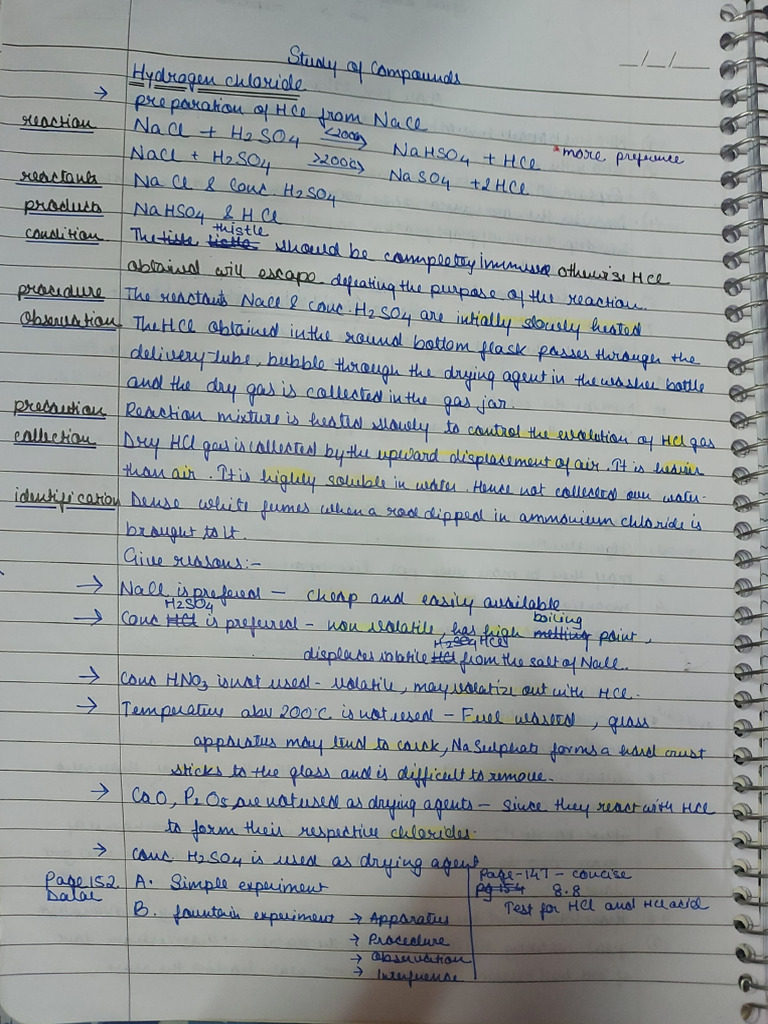 Study of Compounds
Hydrogen chloride
→ preparation of HCl from NaCl
reaction NaCl + H2SO4 <200°C→ NaHSO4 + HCl *more prefrence
NaCl + H2SO4 >200°C→ NaSO4 + 2HCl
reactants NaCl & Conc H2SO4
products NaHSO4 & HCl
condition The thistle should be completly immused otherwise HCl
obtained will escape defeating the purpose of the reaction.
procedure The reactants NaCl & conc. H2SO4 are intially slowly heated
Observation The HCl obtained in the round bottom flask passes through the
delivery tube, bubble through the drying agent in the washer bottle
and the dry gas is collected in the gas jar.
precaution Reaction mixture is heated slowly to control the evolution of HCl gas
collection Dry HCl gas is collected by the upward displacement of air. It is heavier
than air. It is highly soluble in water. Hence not collected over water.
identification Dense white fumes when a rod dipped in ammonium chloride is
brought to it.
Give reasons:-
→ NaCl is prefered - cheap and easily available
→ Conc H2SO4 is preferred - non volatile, has high boiling point,
displaces volatile HCl from the salt of NaCl.
→ Conc HNO3 is not used - volatile, may volatize out with HCl.
→ Temperature abv 200°C is not used - Fuel wasted, glass
apparatus may tend to carck, Na Sulphate forms a hard crust
sticks to the glass and is difficult to remove.
→ CaO, P2O5, are not used as drying agents - since they react with HCl
to form their respective chlorides.
→ conc H2SO4 is used as drying agent
Page 152 A. Simple experiment
Dalal
B. fountain experiment → Apparatus
→ Procedure
→ Observation
→ Interfrence
Page-147 - concise
Pg 154 8.8
Test for HCl and HCl acid